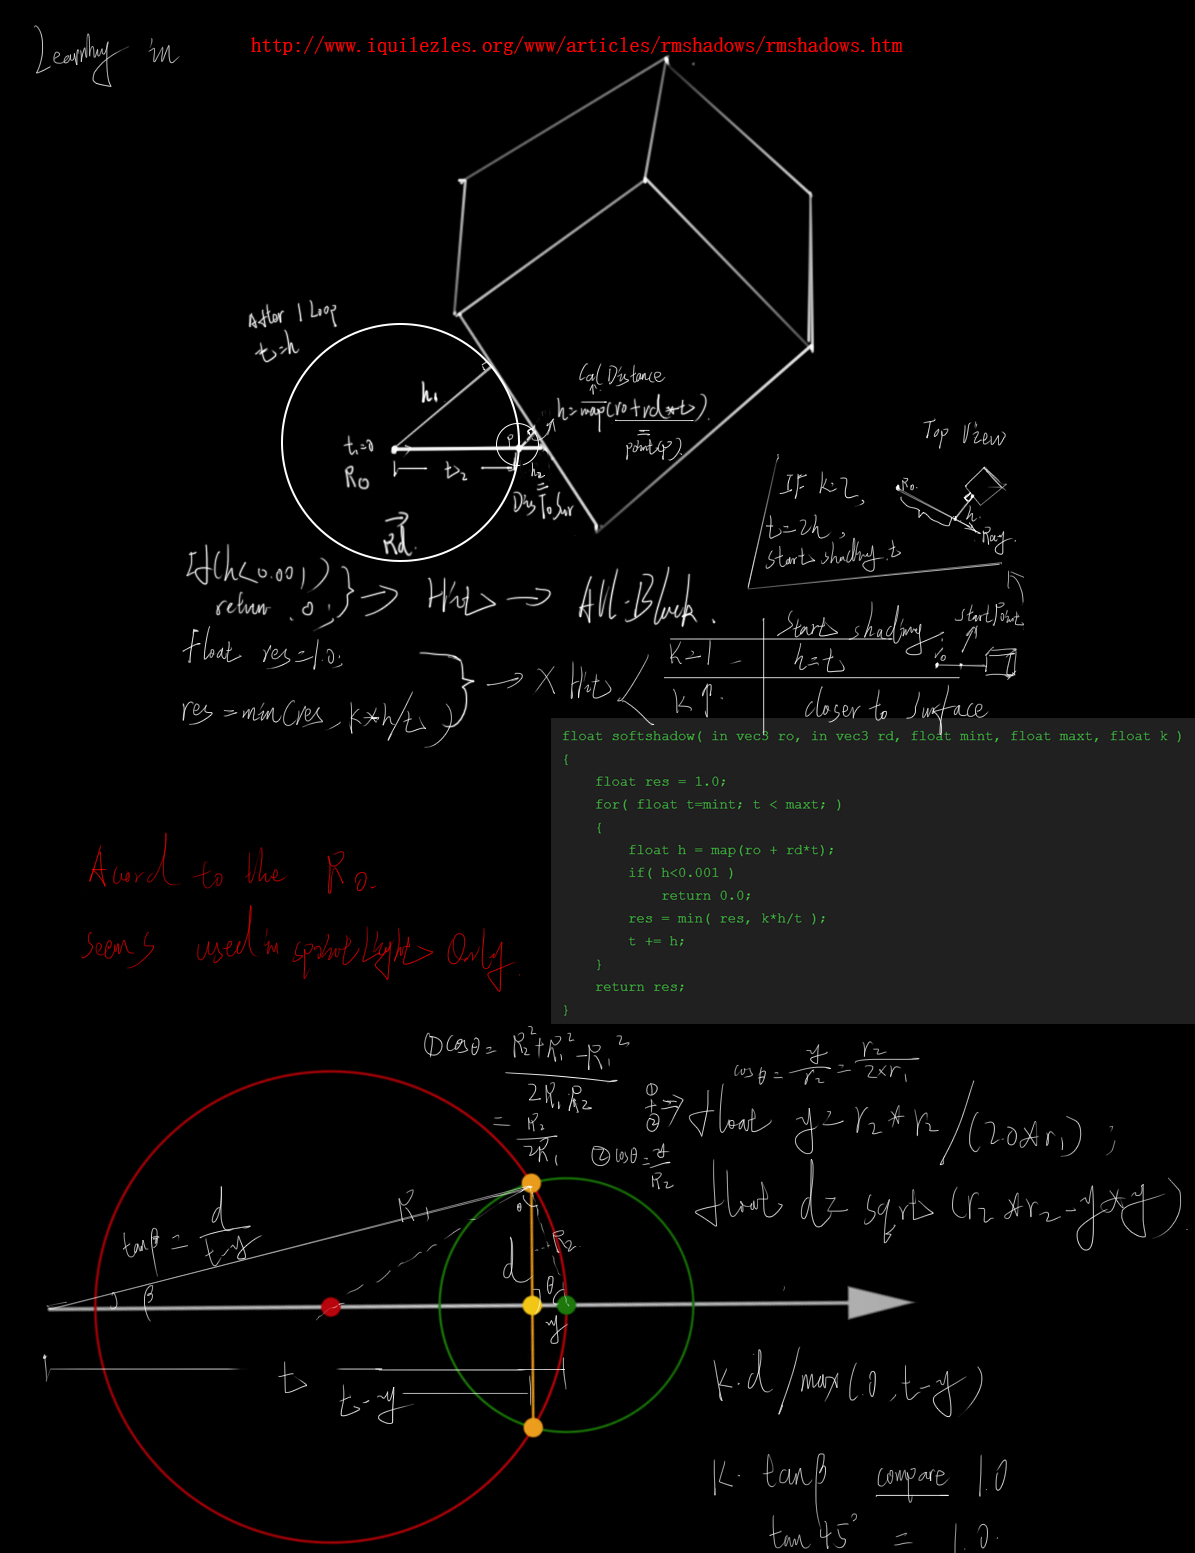 Learning in
http://www.iquilezles.org/www/articles/rmshadows/rmshadows.htm
After 1 Loop
t=h
h₁
t₁=0
Ro
t₂
P
h₂
=
DisToSur
Rd
Cal Distance
h=map(ro+rd*t).
=
point(p).
Top View
IF k=2,
t=2h,
start shading.t
Ro.
h.
Ray.
If(h<0.001)
return .0;
→ Hit → All=Black.
float res=1.0;
res=min(res, k*h/t)
→ X Hit
start shading.
K=1
h=t
K↑.
closer to surface
startPoint
ro
float softshadow( in vec3 ro, in vec3 rd, float mint, float maxt, float k )
{
float res = 1.0;
for( float t=mint; t < maxt; )
{
float h = map(ro + rd*t);
if( h<0.001 )
return 0.0;
res = min( res, k*h/t );
t += h;
}
return res;
}
Acord to the Ro.
seems used in spotLight Only
①cosθ = R₂²+R₁²-R₁² / 2R₁R₂
= R₂/2R₁
②cosθ=y/R₂
cosθ = y/r₂ = r₂/2×r₁
①+②⇒ float y=r₂*r₂/(2.0*r₁);
float d= sqrt(r₂*r₂-y*y)
tanβ = d/t-y
R₁
β
d
θ
R₂
θ
y
t
t-y
K.d/max(.0,t-y)
K. tanβ compare 1.0
tan45° = 1.0.